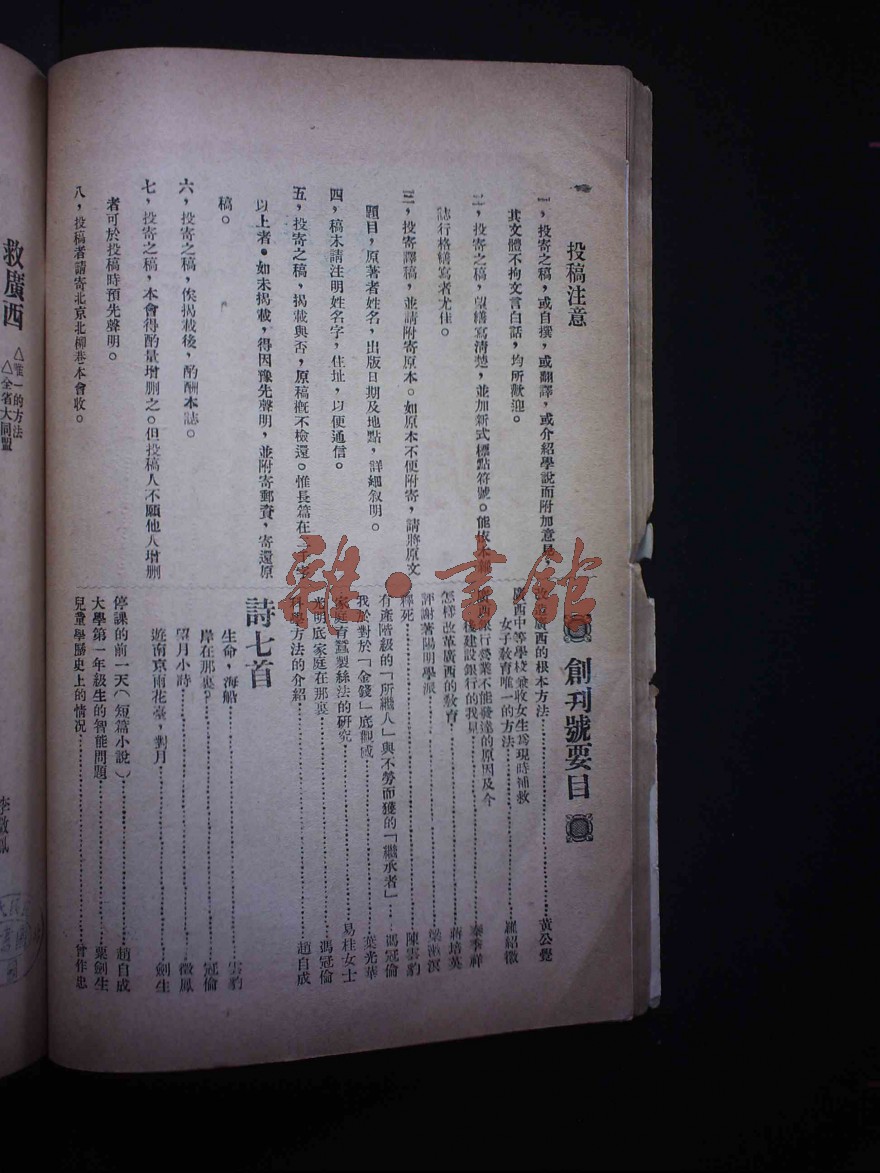 投稿注意
一，投寄之稿，或自撰，或翻譯，或介紹學說而附加意見，
其文體不拘文言白話，均所歡迎。
二，投寄之稿，望繕寫清楚，並加新式標點符號。能依本雜
誌行格繕寫者尤佳。
三，投寄譯稿，並請附寄原本。如原本不便附寄，請將原文
題目，原著者姓名，出版日期及地點，詳細敘明。
四，稿末請注明姓名字，住址，以便通信。
五，投寄之稿，揭載與否，原稿槪不檢還。惟長篇在二千字
以上者。如未揭載，得因豫先聲明，並附寄郵費，寄還原
稿。
六，投寄之稿，俟揭載後，酌酬本誌。
七，投寄之稿，本會得酌量增删之。但投稿人不願他人增删
者可於投稿時預先聲明。
八，投稿者請寄北京北柳巷本會收。
創刊號要目
改造廣西的根本方法…………黃公覺
廣西中等學校兼收女生爲現時補救
女子敎育唯一的方法…………羅紹徽
廣西銀行營業不能發達的原因及今
後建設銀行的我見…………秦季祥
怎樣改革廣西的敎育…………蔣培英
評謝著陽明學派…………梁漱溟
釋死…………陳雲豹
有產階級的「所繼人」與不勞而獲的「繼承者」…馮冠倫
我於對於「金錢」底觀感…………葉光華
家庭育蠶製絲法的研究…………易桂女士
光明底家庭在那裏…………馮冠倫
科學方法的介紹…………趙自成
詩七首
生命，海船…………雲豹
岸在那裏？…………冠倫
望月小詩…………微鳳
遊南京雨花臺，對月…………劍生
停課的前一天（短篇小說）…………趙自成
大學第一年級生的智能問題…………粟劍生
兒童學勝史上的情況…………曾作忠
救廣西
△唯一的方法
△全省大同盟
雜·書館